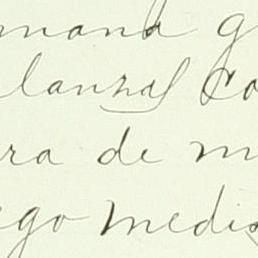 mana g
lanzal Co
ra de m
ego medi